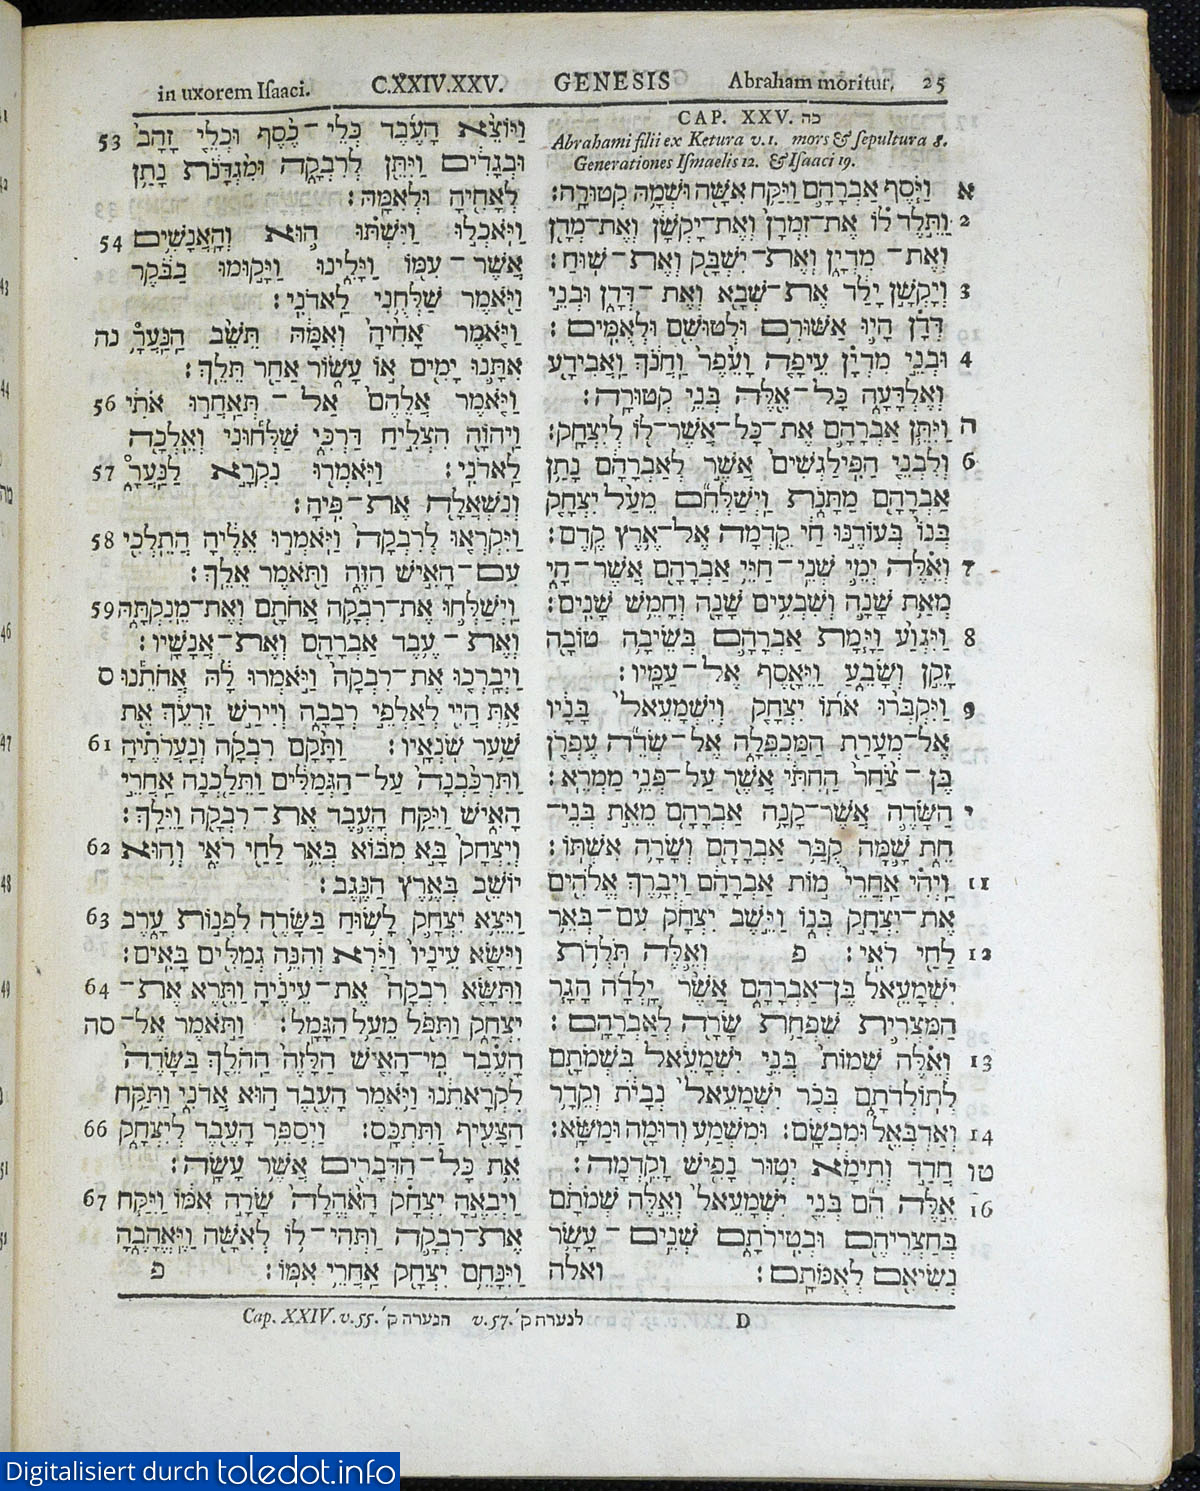 in uxorem Iſaaci. C.XXIV.XXV. GENESIS Abraham moritur, 25
53 וַיּוֹצֵא הָעֶבֶד כְּלֵי־כֶסֶף וּכְלֵי זָהָב
וּבְגָדִים וַיִּתֵּן לְרִבְקָה וּמִגְדָּנֹת נָתַן
לְאָחִיהָ וּלְאִמָּהּ:
54 וַיֹּאכְלוּ וַיִּשְׁתּוּ הוּא וְהָאֲנָשִׁים
אֲשֶׁר־עִמּוֹ וַיָּלִינוּ וַיָּקוּמוּ בַבֹּקֶר
וַיֹּאמֶר שַׁלְּחֻנִי לַאדֹנִי:
נה וַיֹּאמֶר אָחִיהָ וְאִמָּהּ תֵּשֵׁב הַנַּעֲרָ
אִתָּנוּ יָמִים אוֹ עָשׂוֹר אַחַר תֵּלֵךְ:
56 וַיֹּאמֶר אֲלֵהֶם אַל־תְּאַחֲרוּ אֹתִי
וַיהוָֹה הִצְלִיחַ דַּרְכִּי שַׁלְּחוּנִי וְאֵלְכָה
57 לַאדֹנִי: וַיֹּאמְרוּ נִקְרָא לַנַּעֲרָ
וְנִשְׁאֲלָה אֶת־פִּיהָ:
58 וַיִּקְרְאוּ לְרִבְקָה וַיֹּאמְרוּ אֵלֶיהָ הֲתֵלְכִי
עִם־הָאִישׁ הַזֶּה וַתֹּאמֶר אֵלֵךְ:
59 וַיְשַׁלְּחוּ אֶת־רִבְקָה אֲחֹתָם וְאֶת־מֵנִקְתָּהּ
וְאֶת־עֶבֶד אַבְרָהָם וְאֶת־אֲנָשָׁיו:
ס וַיְבָרְכוּ אֶת־רִבְקָה וַיֹּאמְרוּ לָהּ אֲחֹתֵנוּ
אַתְּ הֲיִי לְאַלְפֵי רְבָבָה וְיִירַשׁ זַרְעֵךְ אֵת
61 שַׁעַר שֹׂנְאָיו: וַתָּקָם רִבְקָה וְנַעֲרֹתֶיהָ
וַתִּרְכַּבְנָה עַל־הַגְּמַלִּים וַתֵּלַכְנָה אַחֲרֵי
הָאִישׁ וַיִּקַּח הָעֶבֶד אֶת־רִבְקָה וַיֵּלַךְ:
62 וְיִצְחָק בָּא מִבּוֹא בְּאֵר לַחַי רֹאִי וְהוּא
יוֹשֵׁב בְּאֶרֶץ הַנֶּגֶב:
63 וַיֵּצֵא יִצְחָק לָשׂוּחַ בַּשָּׂדֶה לִפְנוֹת עָרֶב
וַיִּשָּׂא עֵינָיו וַיַּרְא וְהִנֵּה גְמַלִּים בָּאִים:
64 וַתִּשָּׂא רִבְקָה אֶת־עֵינֶיהָ וַתֵּרֶא אֶת־
סה יִצְחָק וַתִּפֹּל מֵעַל הַגָּמָל: וַתֹּאמֶר אֶל־
הָעֶבֶד מִי־הָאִישׁ הַלָּזֶה הַהֹלֵךְ בַּשָּׂדֶה
לִקְרָאתֵנוּ וַיֹּאמֶר הָעֶבֶד הוּא אֲדֹנִי וַתִּקַּח
66 הַצָּעִיף וַתִּתְכָּס: וַיְסַפֵּר הָעֶבֶד לְיִצְחָק
אֵת כָּל־הַדְּבָרִים אֲשֶׁר עָשָׂה:
67 וַיְבִאֶהָ יִצְחָק הָאֹהֱלָה שָׂרָה אִמּוֹ וַיִּקַּח
אֶת־רִבְקָה וַתְּהִי־לוֹ לְאִשָּׁה וַיֶּאֱהָבֶהָ
וַיִּנָּחֵם יִצְחָק אַחֲרֵי אִמּוֹ: פ
CAP. XXV. כה
Abrahami filii ex Ketura v.1. mors & ſepultura 8.
Generationes Iſmaelis 12. & Iſaaci 19.
א וַיֹּסֶף אַבְרָהָם וַיִּקַּח אִשָּׁה וּשְׁמָהּ קְטוּרָה:
2 וַתֵּלֶד לוֹ אֶת־זִמְרָן וְאֶת־יָקְשָׁן וְאֶת־מְדָן
וְאֶת־מִדְיָן וְאֶת־יִשְׁבָּק וְאֶת־שׁוּחַ:
3 וְיָקְשָׁן יָלַד אֶת־שְׁבָא וְאֶת־דְּדָן וּבְנֵי
דְדָן הָיוּ אַשּׁוּרִם וּלְטוּשִׁם וּלְאֻמִּים:
4 וּבְנֵי מִדְיָן עֵיפָה וָעֵפֶר וַחֲנֹךְ וַאֲבִידָע
וְאֶלְדָּעָה כָּל־אֵלֶּה בְּנֵי קְטוּרָה:
ה וַיִּתֵּן אַבְרָהָם אֶת־כָּל־אֲשֶׁר־לוֹ לְיִצְחָק:
6 וְלִבְנֵי הַפִּילַגְשִׁים אֲשֶׁר לְאַבְרָהָם נָתַן
אַבְרָהָם מַתָּנֹת וַיְשַׁלְּחֵם מֵעַל יִצְחָק
בְּנוֹ בְּעוֹדֶנּוּ חַי קֵדְמָה אֶל־אֶרֶץ קֶדֶם:
7 וְאֵלֶּה יְמֵי שְׁנֵי־חַיֵּי אַבְרָהָם אֲשֶׁר־חָי
מְאַת שָׁנָה וְשִׁבְעִים שָׁנָה וְחָמֵשׁ שָׁנִים:
8 וַיִּגְוַע וַיָּמָת אַבְרָהָם בְּשֵׂיבָה טוֹבָה
זָקֵן וְשָׂבֵעַ וַיֵּאָסֶף אֶל־עַמָּיו:
9 וַיִּקְבְּרוּ אֹתוֹ יִצְחָק וְיִשְׁמָעֵאל בָּנָיו
אֶל־מְעָרַת הַמַּכְפֵּלָה אֶל־שְׂדֵה עֶפְרֹן
בֶּן־צֹחַר הַחִתִּי אֲשֶׁר עַל־פְּנֵי מַמְרֵא:
י הַשָּׂדֶה אֲשֶׁר־קָנָה אַבְרָהָם מֵאֵת בְּנֵי־
חֵת שָׁמָּה קֻבַּר אַבְרָהָם וְשָׂרָה אִשְׁתּוֹ:
11 וַיְהִי אַחֲרֵי מוֹת אַבְרָהָם וַיְבָרֶךְ אֱלֹהִים
אֶת־יִצְחָק בְּנוֹ וַיֵּשֶׁב יִצְחָק עִם־בְּאֵר
12 לַחַי רֹאִי: פ וְאֵלֶּה תֹּלְדֹת
יִשְׁמָעֵאל בֶּן־אַבְרָהָם אֲשֶׁר יָלְדָה הָגָר
הַמִּצְרִית שִׁפְחַת שָׂרָה לְאַבְרָהָם:
13 וְאֵלֶּה שְׁמוֹת בְּנֵי יִשְׁמָעֵאל בִּשְׁמֹתָם
לְתוֹלְדֹתָם בְּכֹר יִשְׁמָעֵאל נְבָיֹת וְקֵדָר
14 וְאַדְבְּאֵל וּמִבְשָׂם: וּמִשְׁמָע וְדוּמָה וּמַשָּׂא:
טו חֲדַד וְתֵימָא יְטוּר נָפִישׁ וָקֵדְמָה:
16 אֵלֶּה הֵם בְּנֵי יִשְׁמָעֵאל וְאֵלֶּה שְׁמֹתָם
בְּחַצְרֵיהֶם וּבְטִירֹתָם שְׁנֵים־עָשָׂר
נְשִׂיאִם לְאֻמֹּתָם: ואלה
Cap. XXIV. v.55. הנערה ק' v.57. לנערה ק' D
Digitalisiert durch toledot.info